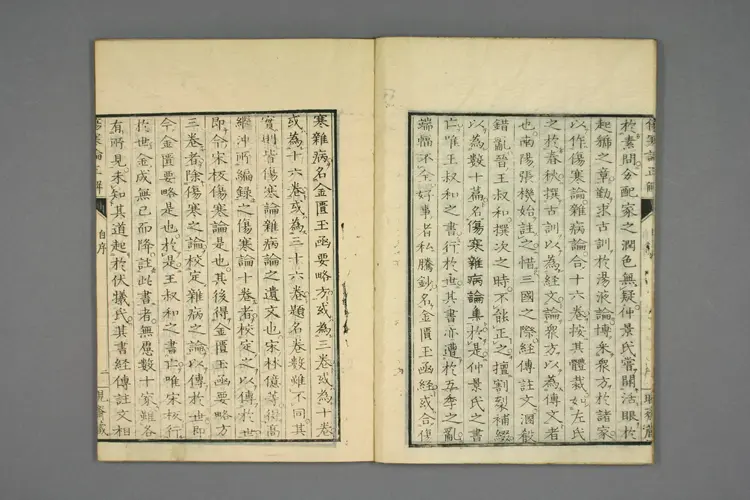 傷寒論正解
於素問分配家之潤色無疑仲景氏嘗開活眼於
起號之章勤求古訓於湯液論博采衆方於諸家
以作傷寒論雜病論合十六卷按其體裁如左氏
之於春秋撰古訓以為經文論衆方以為傳文者
也南陽張機始註之惜三國之際經傳註文溷殽
錯亂晉王叔和撰次之時不能正之擅割裂補綴
以為數十篇名傷寒雜病論集於是仲景氏之書
亡唯王叔和之書行於世其書亦遭於五季之亂
端幅不全好事者私騰鈔名金匱玉函經或合傷
寒雜病名金匱玉函要略方或為三卷或為十卷
或為十六卷或為三十六卷題名卷數雖不同其
實則皆傷寒論雜病論之遺文也宋林億等得高
繼沖所編錄之傷寒論十卷者校定之以傳於世
即今宋板傷寒論是也其後得金匱玉函要略方
三卷者除傷寒之論校定雜病之論以傳於世即
今金匱要略是也於是王叔和之書亡唯宋板行
於世金成無已而降註此書者無慮數十家雖各
有所見未知其道起於伏犧氏其書經傳註文相
自序
二